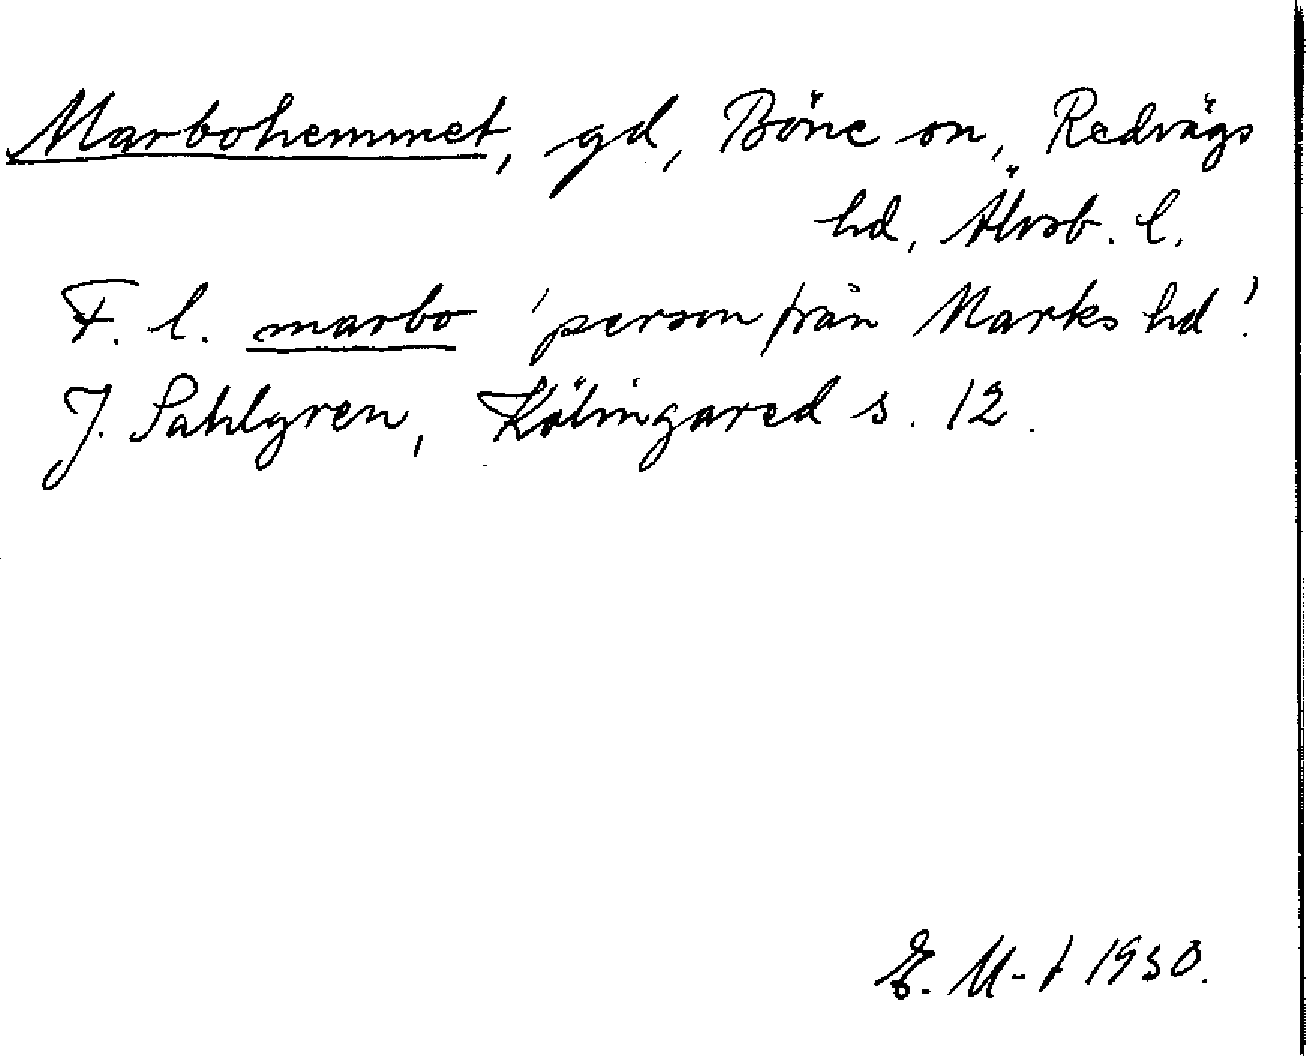 Marbohemmet, gd, Böne sn, Redvägs
hd, Älvsb. l.
F. l. marbo 'person från Marks hd'.
J. Sahlgren, Kölingared s. 12.
E. M-t 1930.